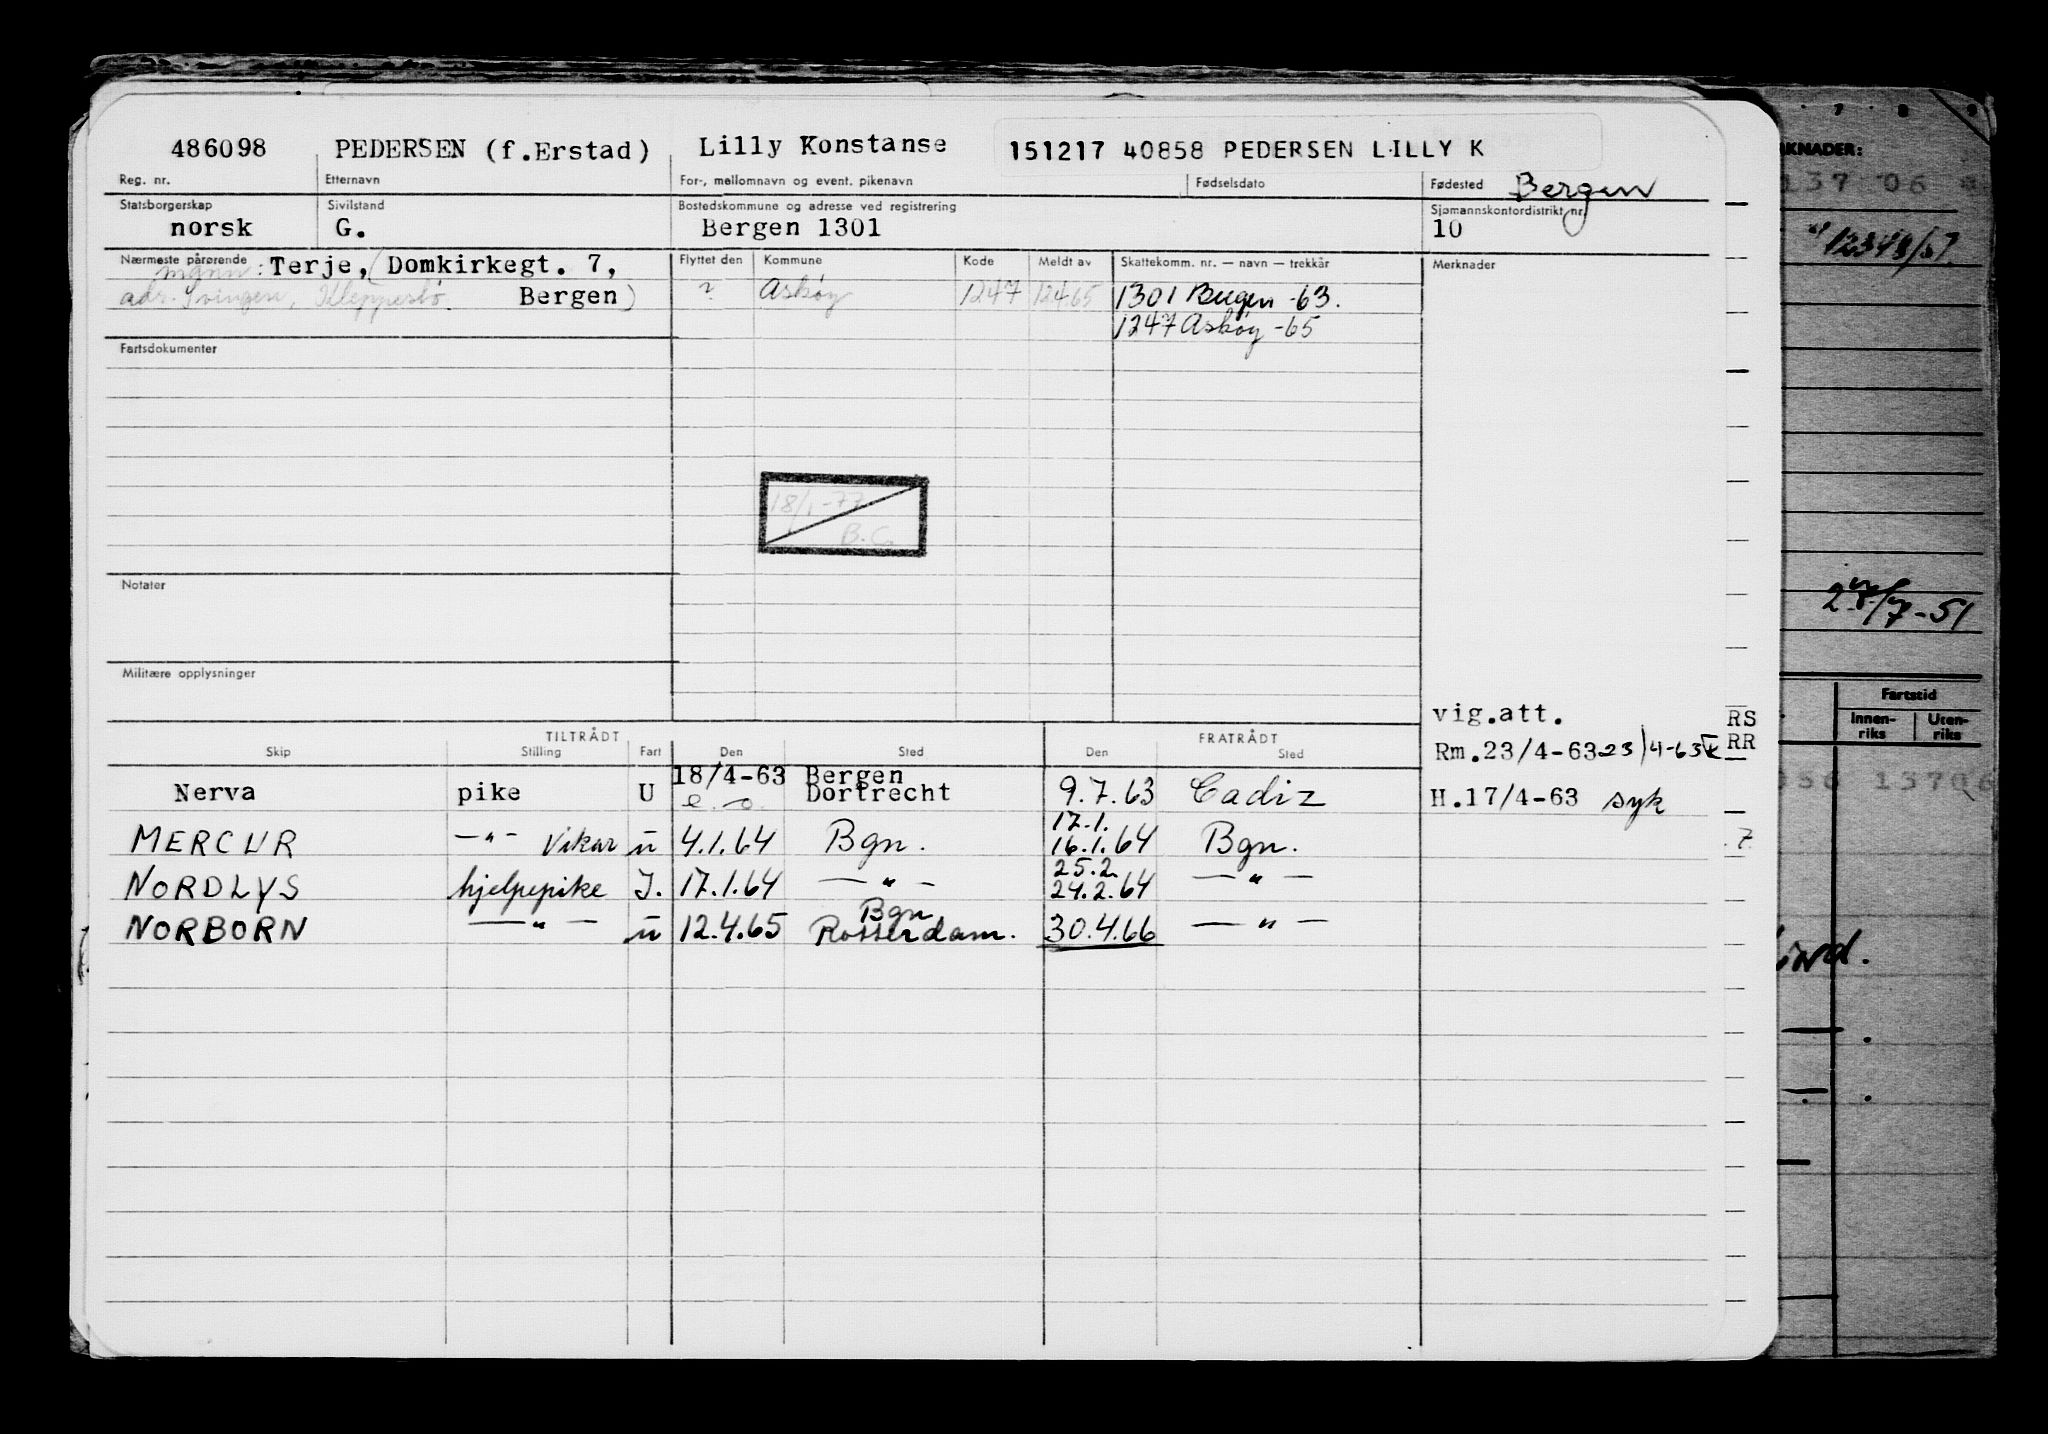 486098 PEDERSEN (f.Erstad) Lilly Konstanse 151217 40858 PEDERSEN LILLY K
Reg. nr. Etternavn For-, mellomnavn og event. pikenavn Fødselsdato Fødested Bergen
Statsborgerskap Sivilstand Bostedskommune og adresse ved registrering Sjømannskontordistrikt nr.
norsk G. Bergen 1301 10
Nærmeste pårørende mann: Terje, (Domkirkegt. 7, Flyttet den Kommune Kode Meldt av Skattekomm. nr. — navn — trekkår Merknader
adr. Svingen, Kleppestø. Bergen) ? Askøy 1247 12465 1301 Bergen -63.
1247 Askøy -65
Fartsdokumenter
18/1-77
B.C.
Notater
Militære opplysninger
vig.att.
TILTRÅDT FRATRÅDT RS
Skip Stilling Fart Den Sted Den Sted Rm.23/4-63 23/4-63 RR
18/4-63 Bergen
Nerva pike U e. o. Dortrecht 9.7.63 Cadiz H.17/4-63 syk
17.1.
MERCUR —"— vikar u 4.1.64 Bgn. 16.1.64 Bgn. 7
25.2.
NORDLYS hjelpepike I. 17.1.64 —"— 24.2.64 —"—
Bgn
NORBORN —"— u 12.4.65 Rotterdam. 30.4.66 —"—
7 8 9
KNADER:
137 06
12348/57
27/7-51
Fartstid
Innen-riks Uten-riks
056 13706